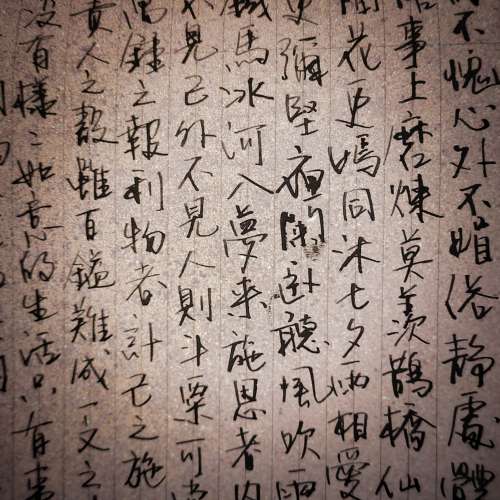 不愧心外不媚俗静處體
事上磨煉莫羡鵲橋仙
花更嫣同沐七夕雨相愛
更彌堅夜闌卧聽風吹雨
鐵馬冰河入夢来施恩者内
不見己外不見人則斗粟可
萬鍾之報利物者計己之施
責人之雖百鎰難成一文之
沒有樣〻如意的生活只有事